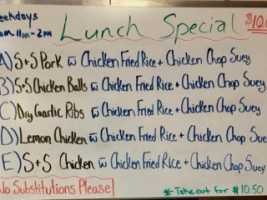 eekdays
Lunch Special
$10.
11AM-2PM
A) S+S Pork w Chicken Fried Rice + Chicken Chop Suey
B) S+S Chicken Balls w Chicken Fried Rice + Chicken Chop Suey
C) Dry Garlic Ribs w Chicken Fried Rice + Chicken Chop Suey
D) Lemon Chicken w Chicken Fried Rice + Chicken Chop Suey
E) S+S Chicken w Chicken Fried Rice + Chicken Chop Suey
No Substitutions Please
* Take out for $10.50